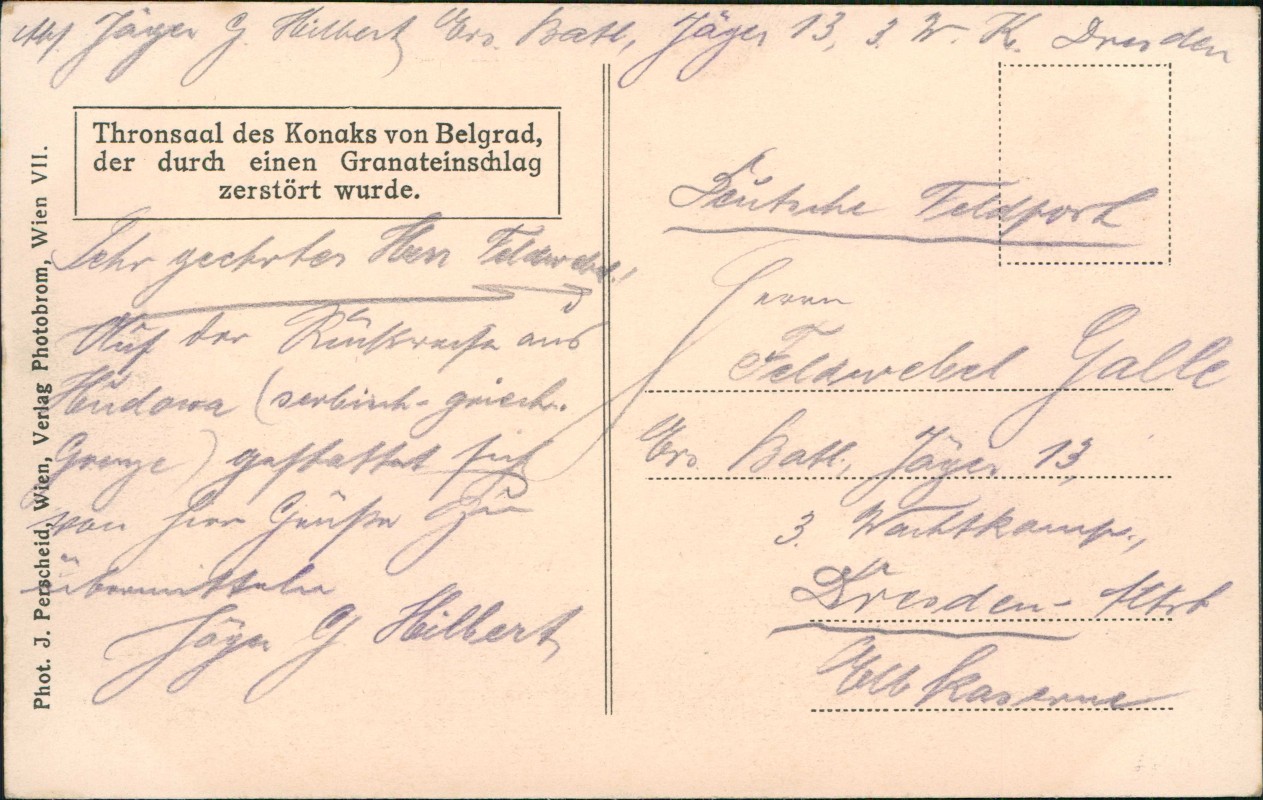 Abs. Jäger G. Hilbert Ers. Batl, Jäger 13, 3. W. K. Dresden
Thronsaal des Konaks von Belgrad,
der durch einen Granateinschlag
zerstört wurde.
Sehr geehrter Herr Feldwebel!
Auf der Rückreise aus
Hudowa (serbisch-griech.
Grenze) gestattet sich
von hier Grüße zu
übermitteln
Jäger G Hilbert
Phot. J. Perscheid, Wien, Verlag Photobrom, Wien VII.
Deutsche Feldpost
Herrn
Feldwebel Galle
Ers. Batl, Jäger 13,
3. Wachtkomp.,
Dresden-Altst
Elbkaserne